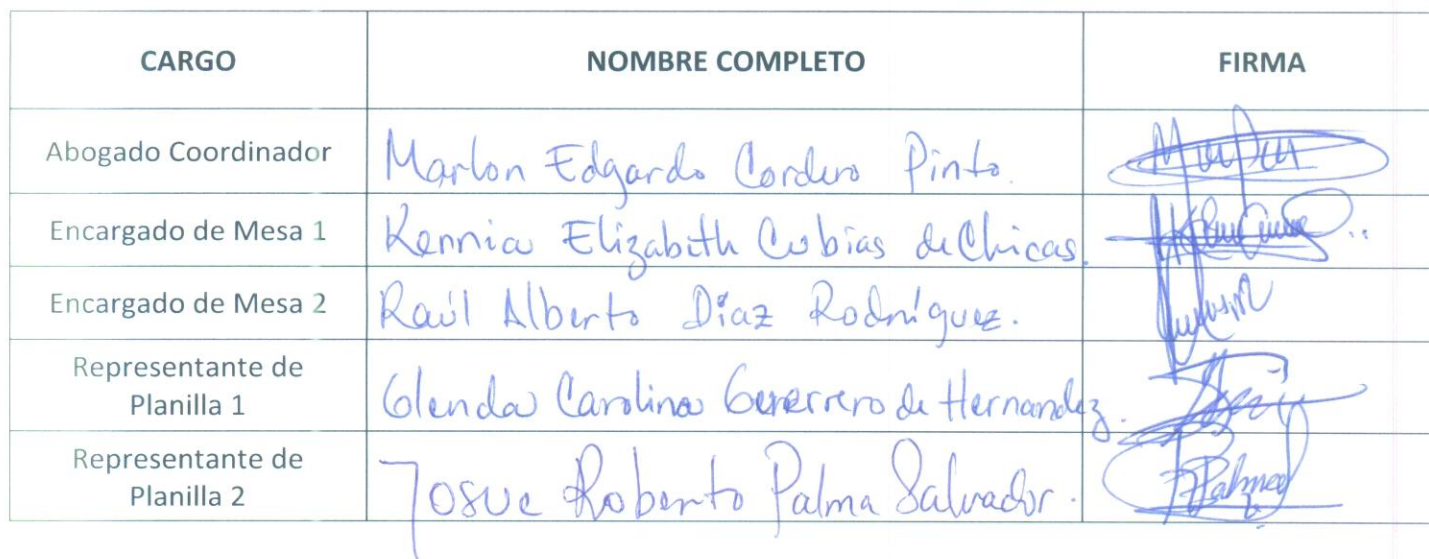 CARGO NOMBRE COMPLETO FIRMA
Abogado Coordinador Marlon Edgardo Cordero Pinto.
Encargado de Mesa 1 Kennia Elizabeth Cubias de Chicas.
Encargado de Mesa 2 Raúl Alberto Díaz Rodríguez.
Representante de
Planilla 1 Glenda Carolina Guerrero de Hernandez.
Representante de
Planilla 2 Josue Roberto Palma Salvador.